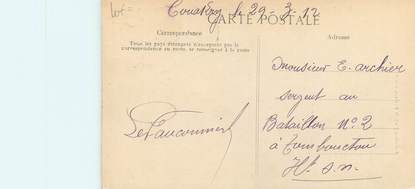 le 29-3-12
CARTE POSTALE
Correspondance
Adresse
Tous les pays étrangers n'acceptent pas la
correspondance au recto, se renseigner à la poste
Monsieur E. Archier
sergent au
Bataillon Nº 2
à Tombouctou
Ht. S. N.
LeFauconnier